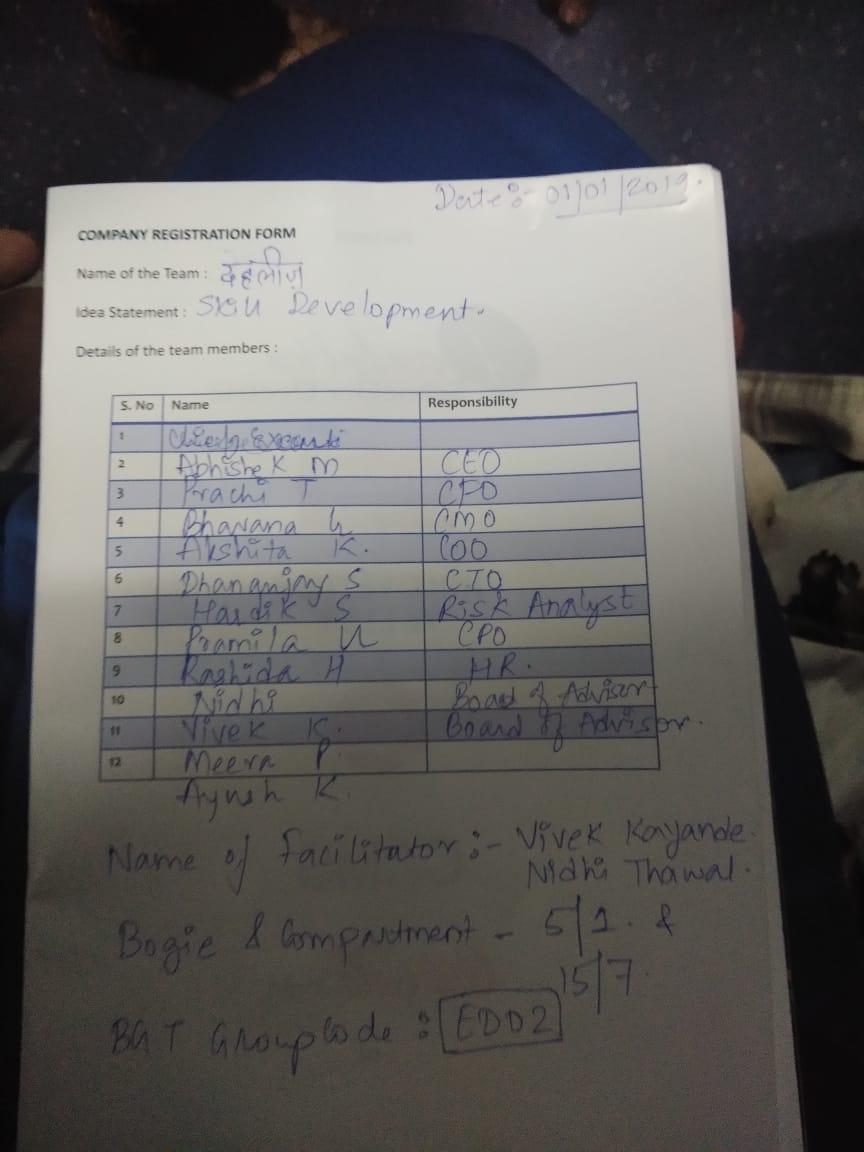 Date:- 01/01/2019.
COMPANY REGISTRATION FORM
Name of the Team : देहलीज़
Idea Statement : Skill Development.
Details of the team members :
S. No Name Responsibility
1
2 Abhishek M CEO
3 Prachi T CFO
4 Bhavana G CMO
5 Akshita K. COO
6 Dhananjay S CTO
7 Hardik S Risk Analyst
8 Pramila U CPO
9 Rashida H HR.
10 Nidhi Board of Advisor
11 Vivek K. Board of Advisor.
12 Meera P.
Ayush K.
Name of facilitator :- Vivek Kayande.
Nidhi Thawal.
Bogie & Compartment - 5/1. &
15/7.
BGT Group Code : EDD2